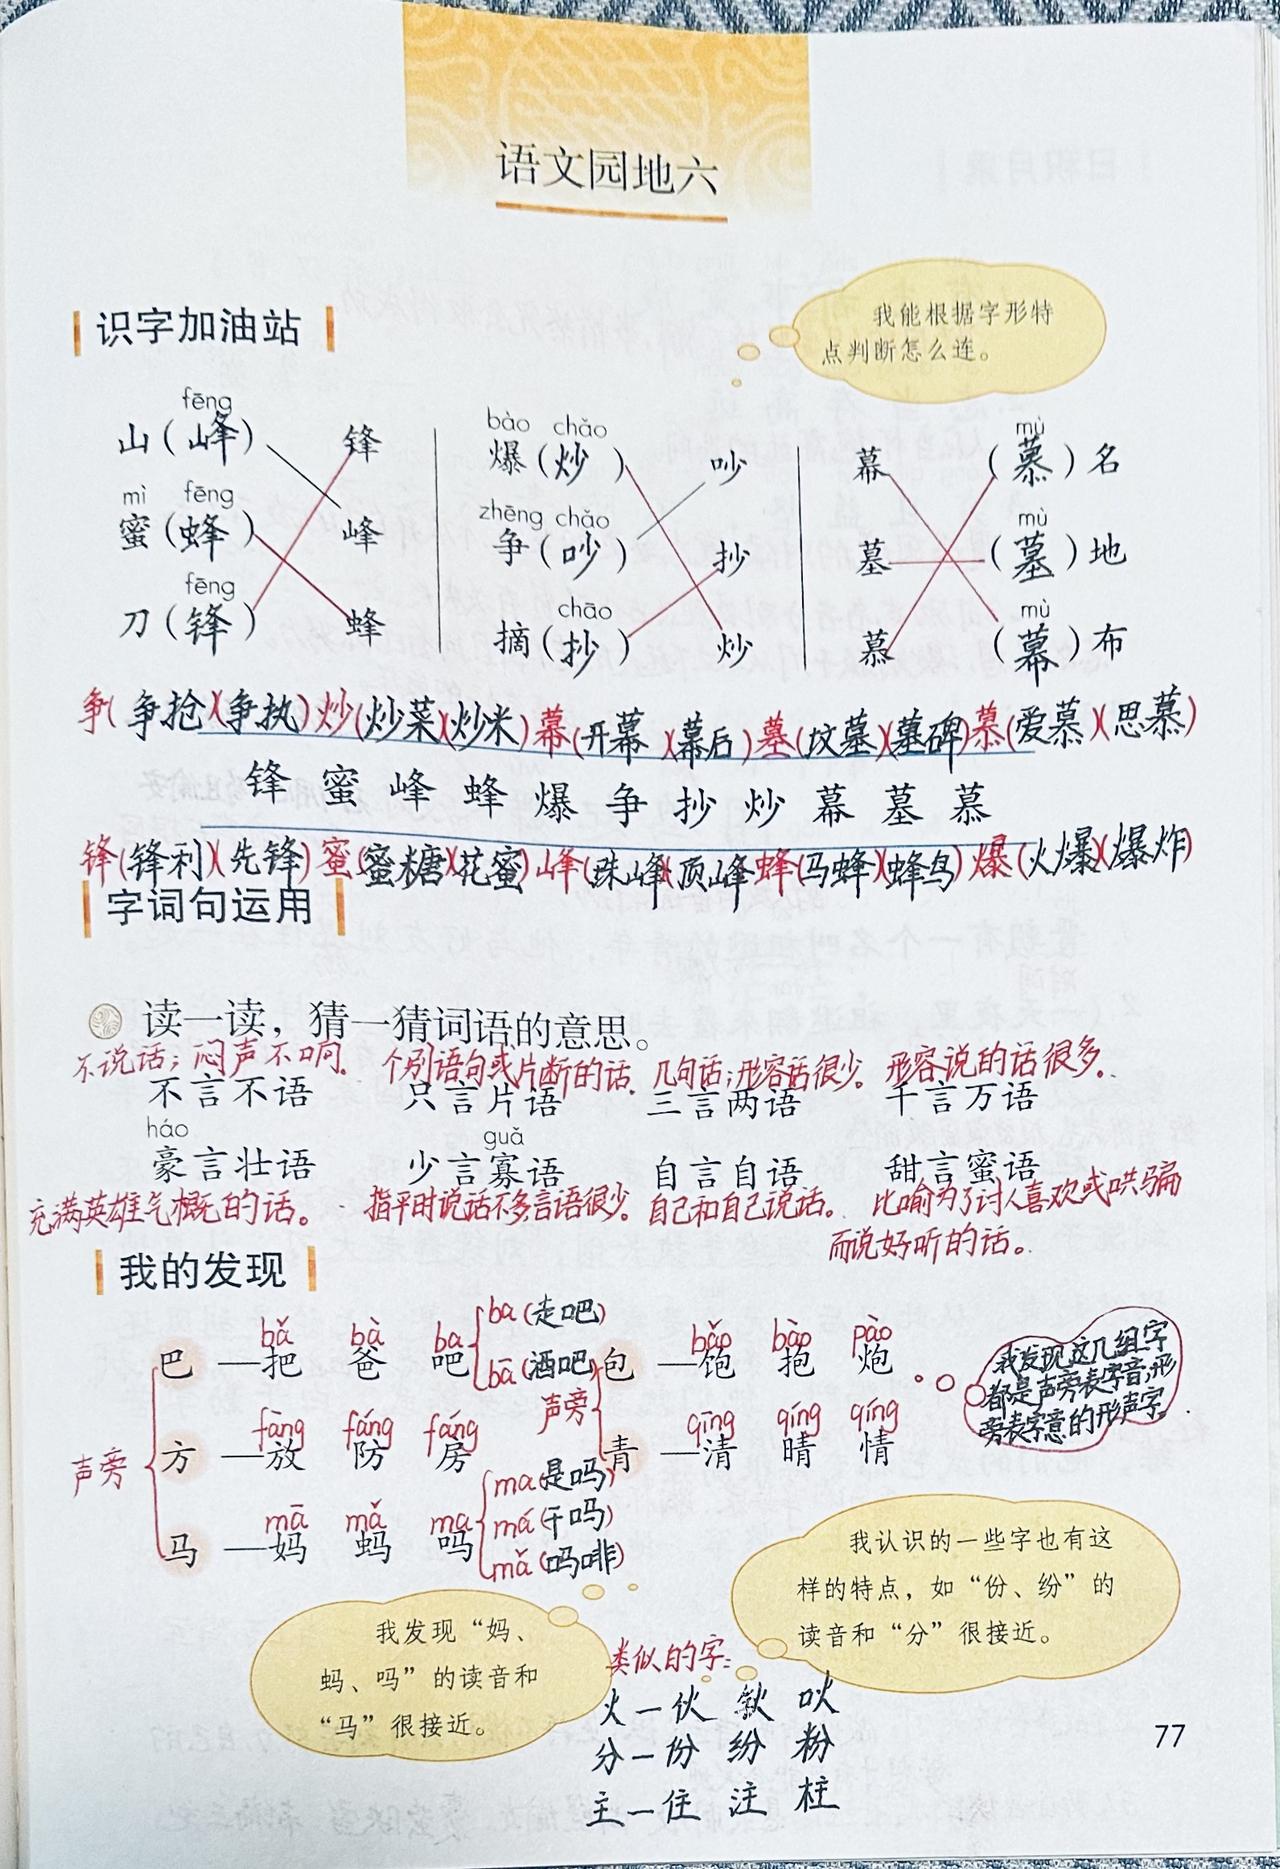 语文园地六
识字加油站
我能根据字形特
点判断怎么连。
fēng
山(峰) 锋
mì fēng
蜜(蜂) 峰
fēng
刀(锋) 蜂
bào chǎo
爆(炒) 吵
zhēng chǎo
争(吵) 抄
chāo
摘(抄) 炒
mù
幕 (慕)名
mù
墓 (墓)地
mù
慕 (幕)布
争(争抢)(争执)炒(炒菜)(炒米)幕(开幕)(幕后)墓(坟墓)(墓碑)慕(爱慕)(思慕)
锋 蜜 峰 蜂 爆 争 抄 炒 幕 墓 慕
锋(锋利)(先锋)蜜(蜜糖)(花蜜)峰(珠峰)(顶峰)蜂(马蜂)(蜂鸟)爆(火爆)(爆炸)
字词句运用
读一读，猜一猜词语的意思。
不说话；闷声不响。 个别语句或片断的话. 几句话；形容话很少。 形容说的话很多。
不言不语 只言片语 三言两语 千言万语
háo guǎ
豪言壮语 少言寡语 自言自语 甜言蜜语
充满英雄气概的话。 指平时说话不多,言语很少。 自己和自己说话。 比喻为了讨人喜欢或哄骗
而说好听的话。
我的发现
bǎ bà ba ba(走吧)
bā(酒吧)
巴—把 爸 吧
fàng fáng fáng
方—放 防 房
mā mǎ ma
马—妈 蚂 吗
ma(是吗)
má(干吗)
mǎ(吗啡)
声旁
声旁
bǎo bào pào
包—饱 抱 炮
qīng qíng qíng
青—清 晴 情
我发现这几组字
都是声旁表字音,形
旁表字意的形声字.
我认识的一些字也有这
样的特点，如“份、纷”的
读音和“分”很接近。
我发现“妈、
蚂、吗”的读音和
“马”很接近。
类似的字:
火—伙 钬 吙
分—份 纷 粉
主—住 注 柱
77